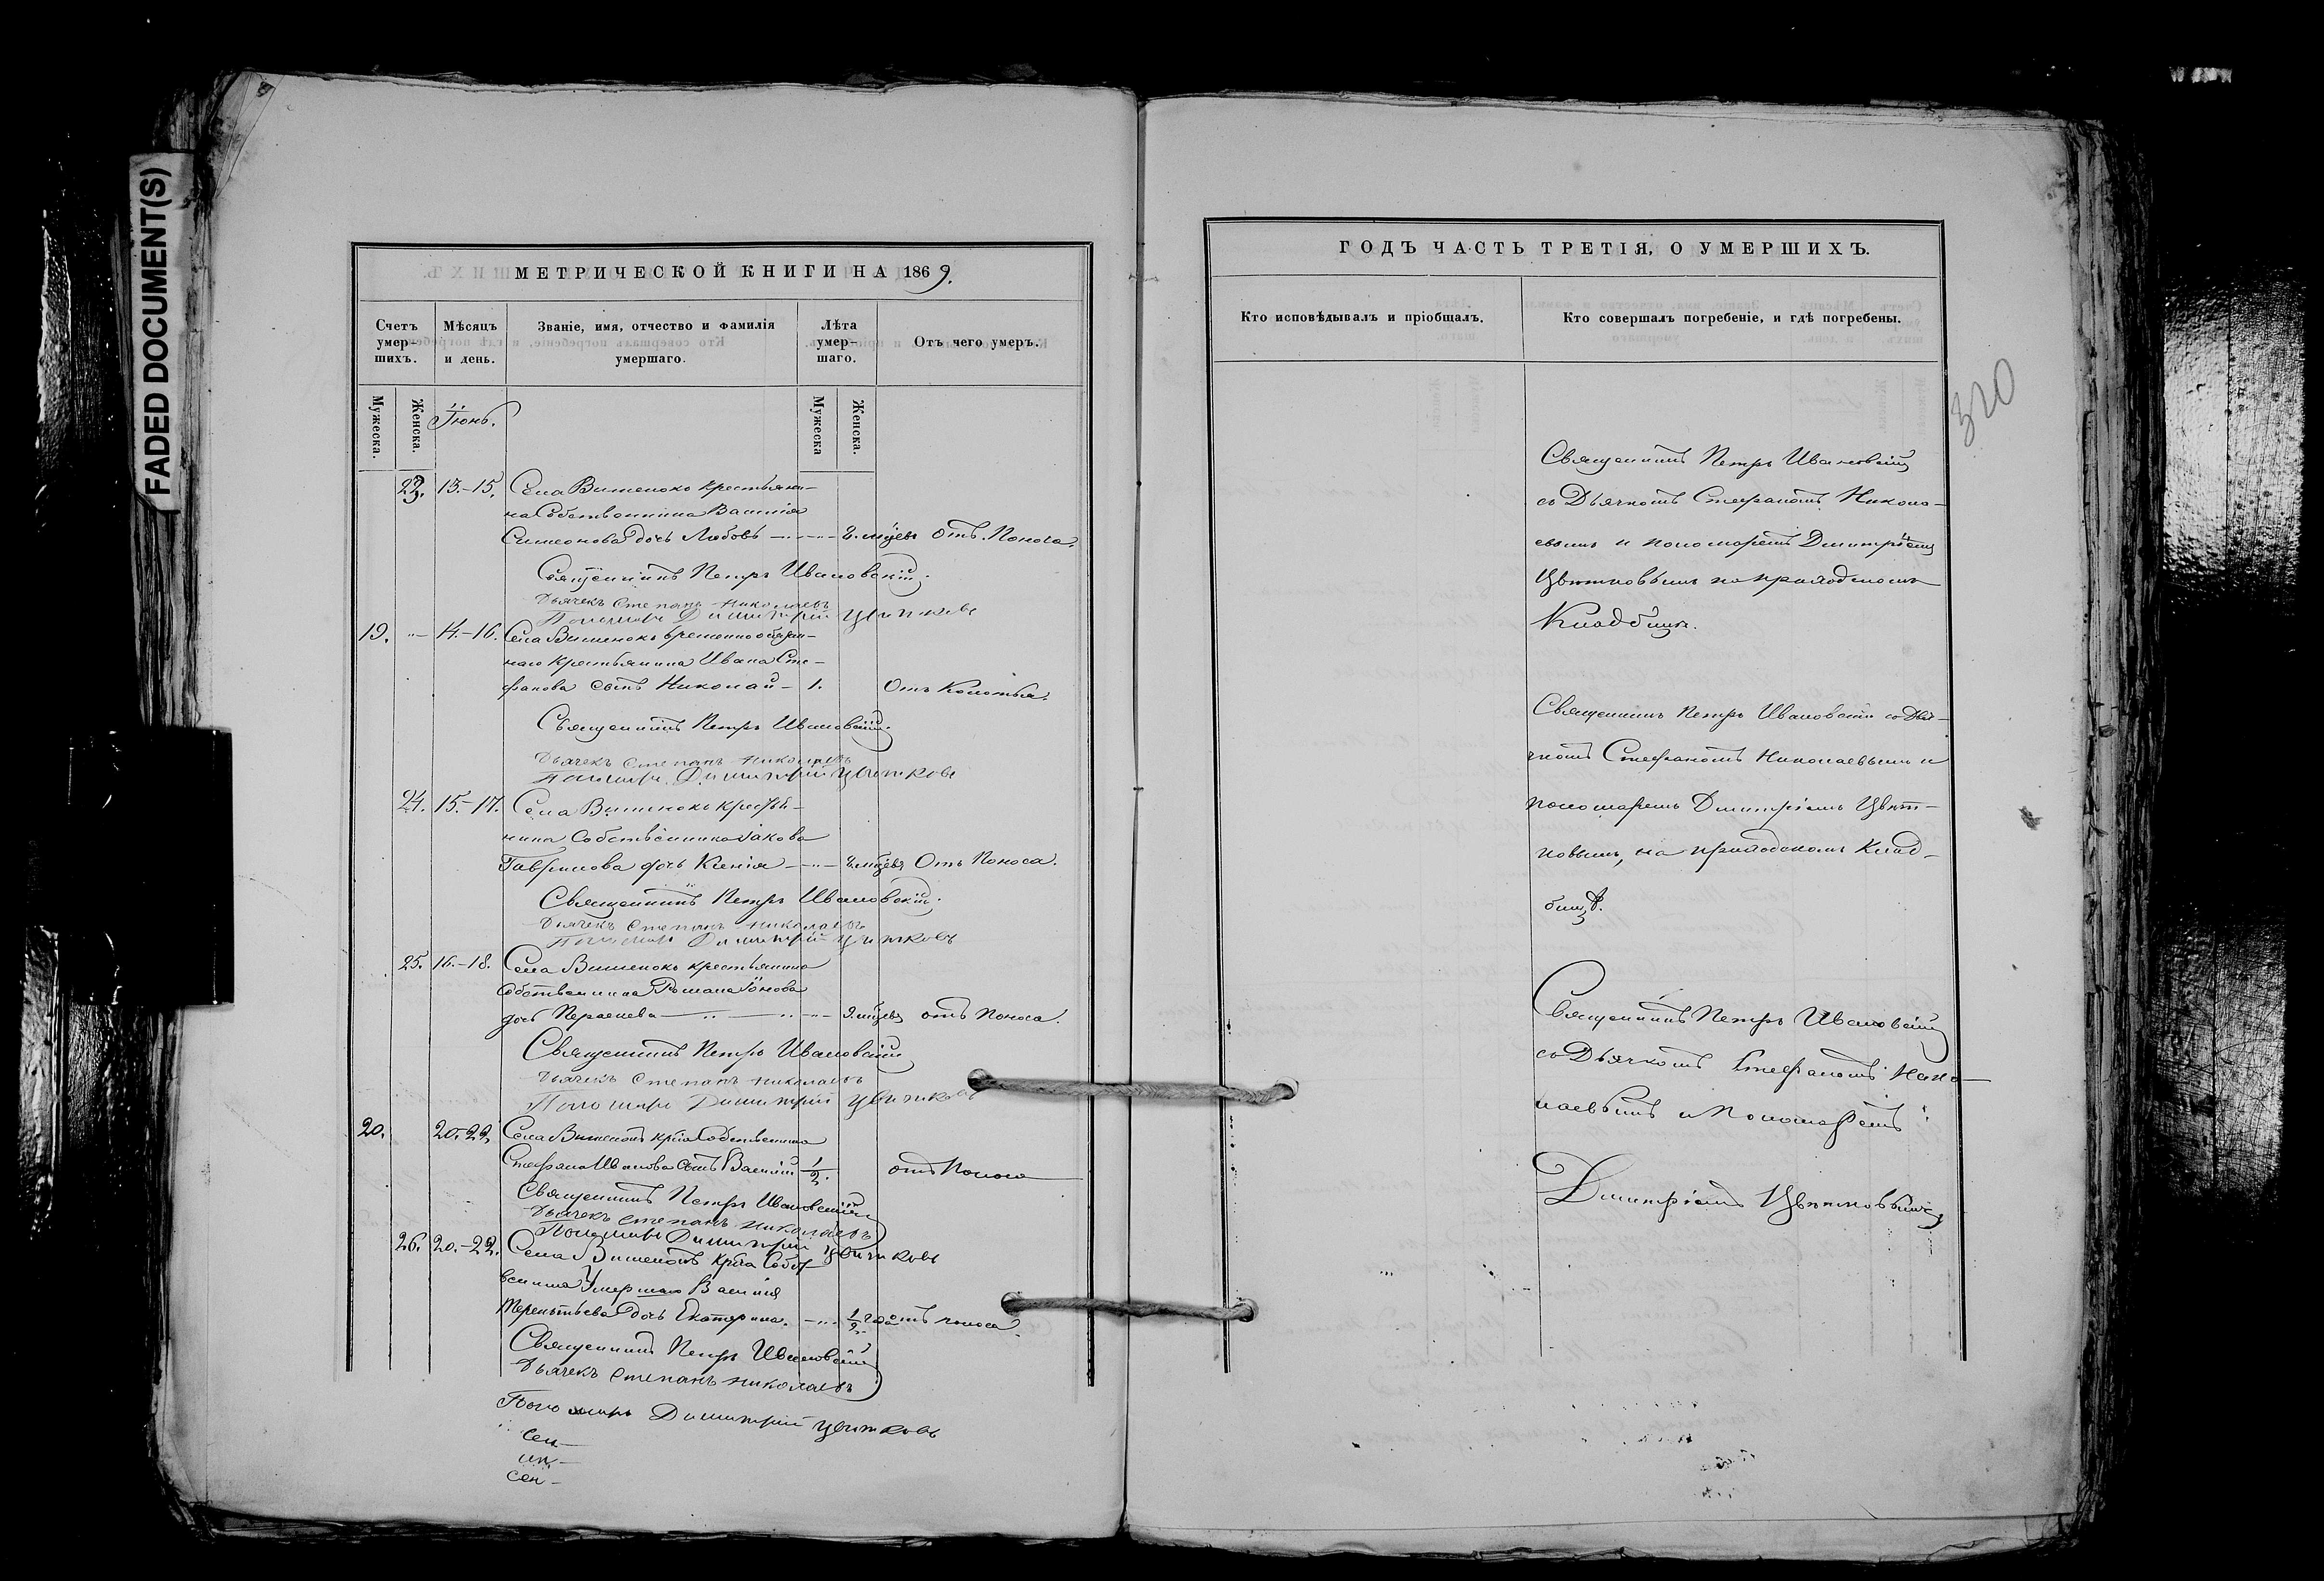 FADED DOCUMENT(S)
МЕТРИЧЕСКОЙ КНИГИ НА 1869.
Счетъ умер-шихъ.
Мѣсяцъ и день.
Званіе, имя, отчество и фамилія умершаго.
Лѣта умер-шаго.
Отъ чего умеръ.
Мужеска.
Женска.
Іюнь.
Мужеска
Женска.
23. 13.-15. Села Вишенокъ крестьяни-
на Собственника Василія
Симеонова дочь Любовь отъ Поноса.
Священникъ Петръ Ивановскій.
Дьячекъ Степанъ Николаевъ
Пономарь Димитрій Цвѣтковъ
19. 14.-16. Села Вишенокъ временнообязан-
наго крестьянина Ивана Сте-
фанова сынъ Николай - 1. Отъ Колотья.
Священникъ Петръ Ивановскій.
Дьячекъ Степанъ Николаевъ
Пономарь Димитрій Цвѣтковъ
24. 15.-17. Села Вишенокъ крестья-
нина Собственника Іакова
Гаврилова дочь Ксенія Отъ Поноса.
Священникъ Петръ Ивановскій.
Дьячекъ Степанъ Николаевъ
Пономарь Димитрій Цвѣтковъ
25. 16.-18. Села Вишенокъ крестьянина
Собственника Романа Іонова
дочь отъ Поноса.
Священникъ Петръ Ивановскій
Дьячекъ Степанъ Николаевъ
Пономарь Димитрій Цвѣтковъ
20. 20.-22. Села Вишенокъ Собственника
Стефана Иванова сынъ Василій 1/2. отъ Поноса
Священникъ Петръ Ивановскій
Дьячекъ Степанъ Николаевъ
Пономарь Димитрій Цвѣтковъ
26. 20.-22. Села Вишенокъ Собст-
венника Умершаго Василія
Терентьева дочь Екатерина. 1/2 года отъ поноса.
Священникъ Петръ Ивановскій
Дьячекъ Степанъ Николаевъ
Пономарь Димитрій Цвѣтковъ
ГОДЪ ЧАСТЬ ТРЕТІЯ, О УМЕРШИХЪ.
Кто исповѣдывалъ и пріобщалъ.
Кто совершалъ погребеніе, и гдѣ погребены.
320
Священникъ Петръ Ивановскій
съ Дьячкомъ Стефаномъ Никола-
евымъ и пономаремъ Димитріемъ
Цвѣтковымъ на приходскомъ
Кладбищѣ.
Священникъ Петръ Ивановскій съ Дья-
чкомъ Стефаномъ Николаевымъ и
пономаремъ Димитріемъ Цвѣт-
ковымъ, на приходскомъ Клад-
бищѣ.
Священникъ Петръ Ивановскій
съ Дьячкомъ Стефаномъ Нико-
лаевымъ и Пономаремъ
Димитріемъ Цвѣтковымъ